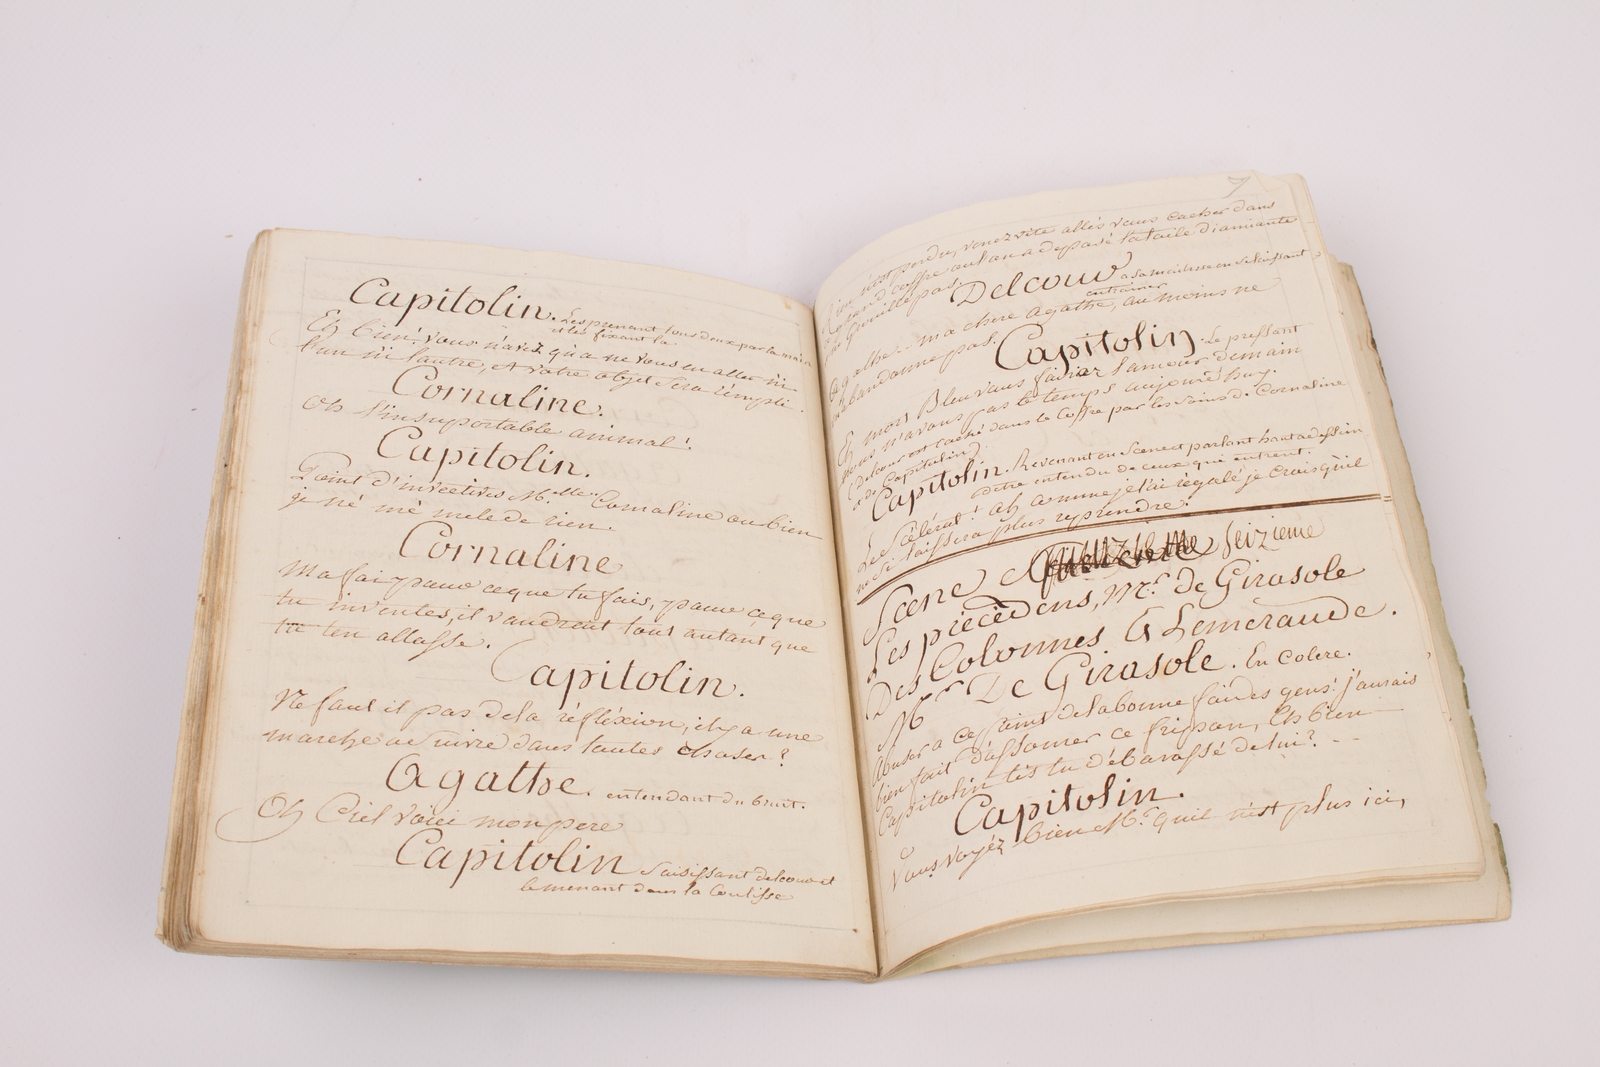 Capitolin. Les prenant tous deux par la main
et les fixant la
Eh bien! vous n'avez qu'a ne vous en aller ni
l'un ni l'autre, et votre objet sera rempli.
Cornaline.
Oh l'insuportable animal!
Capitolin.
Point d'invectives Melle. Cornaline ou bien
je né mé mele de rien.
Cornaline
Ma foi pour ce que tu fais, pour ce que
tu inventes, il vaudroit tout autant que
tu t'en allasse.
Capitolin.
Ne faut il pas de la réfléxion, il y a une
marche a suivre dans toutes choses?
Agathe. entendant du bruit.
Oh Ciel voici mon pere
Capitolin saisissant delcour et
le menant dans la Coulisse
7
Rien n'est perdu, venez vite allés vous cacher dans
grand coffre ou l'on a deposé la toile d'amiante
ne bouillé pas.
Delcour a sa maitresse en se laissant
entrainer
Agathe... ma chere agathe, au moins ne
m'abandonne pas.
Capitolin. Le pressant
Eh mor Bleu vous fairez l'amour demain
nous n'avons pas le temps aujourd'huy.
(Delcour est caché dans le Coffre par les soins de Cornaline
et de Capitolin)
Capitolin. Revenant en Scene et parlant haut a dessein
detre entendu de ceux qui entrent.
Le Scélérat! ah comme je l'ai regalé je crois qu'il
ne s'i laissera plus reprendre.
Scene seizieme
Les précédens, Mr. de Girasole
Des Colonnes & Lemeraude.
Mr. De Girasole. En Colere.
Abuser a ce point de la bonne foi des gens! j'aurais
bien fait d'assomer ce fripon, Eh bien
Capitolin t'és tu débarassé de lui? --
Capitolin.
Vous voyéz bien Mr. qu'il n'est plus ici,